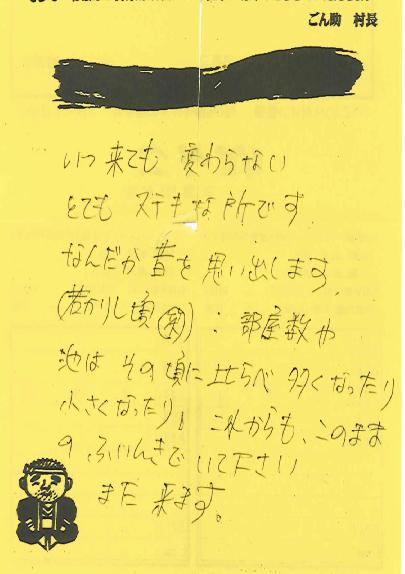 ごん助 村長
いつ来ても 変わらない
とても ステキな所です
なんだか昔を思い出します
(若かりし頃㊇) : 部屋数や
池は その頃に比らべ 多くなったり
小さくなったり! これからも、このまま
の ふいんきでいて下さい
また 来ます。